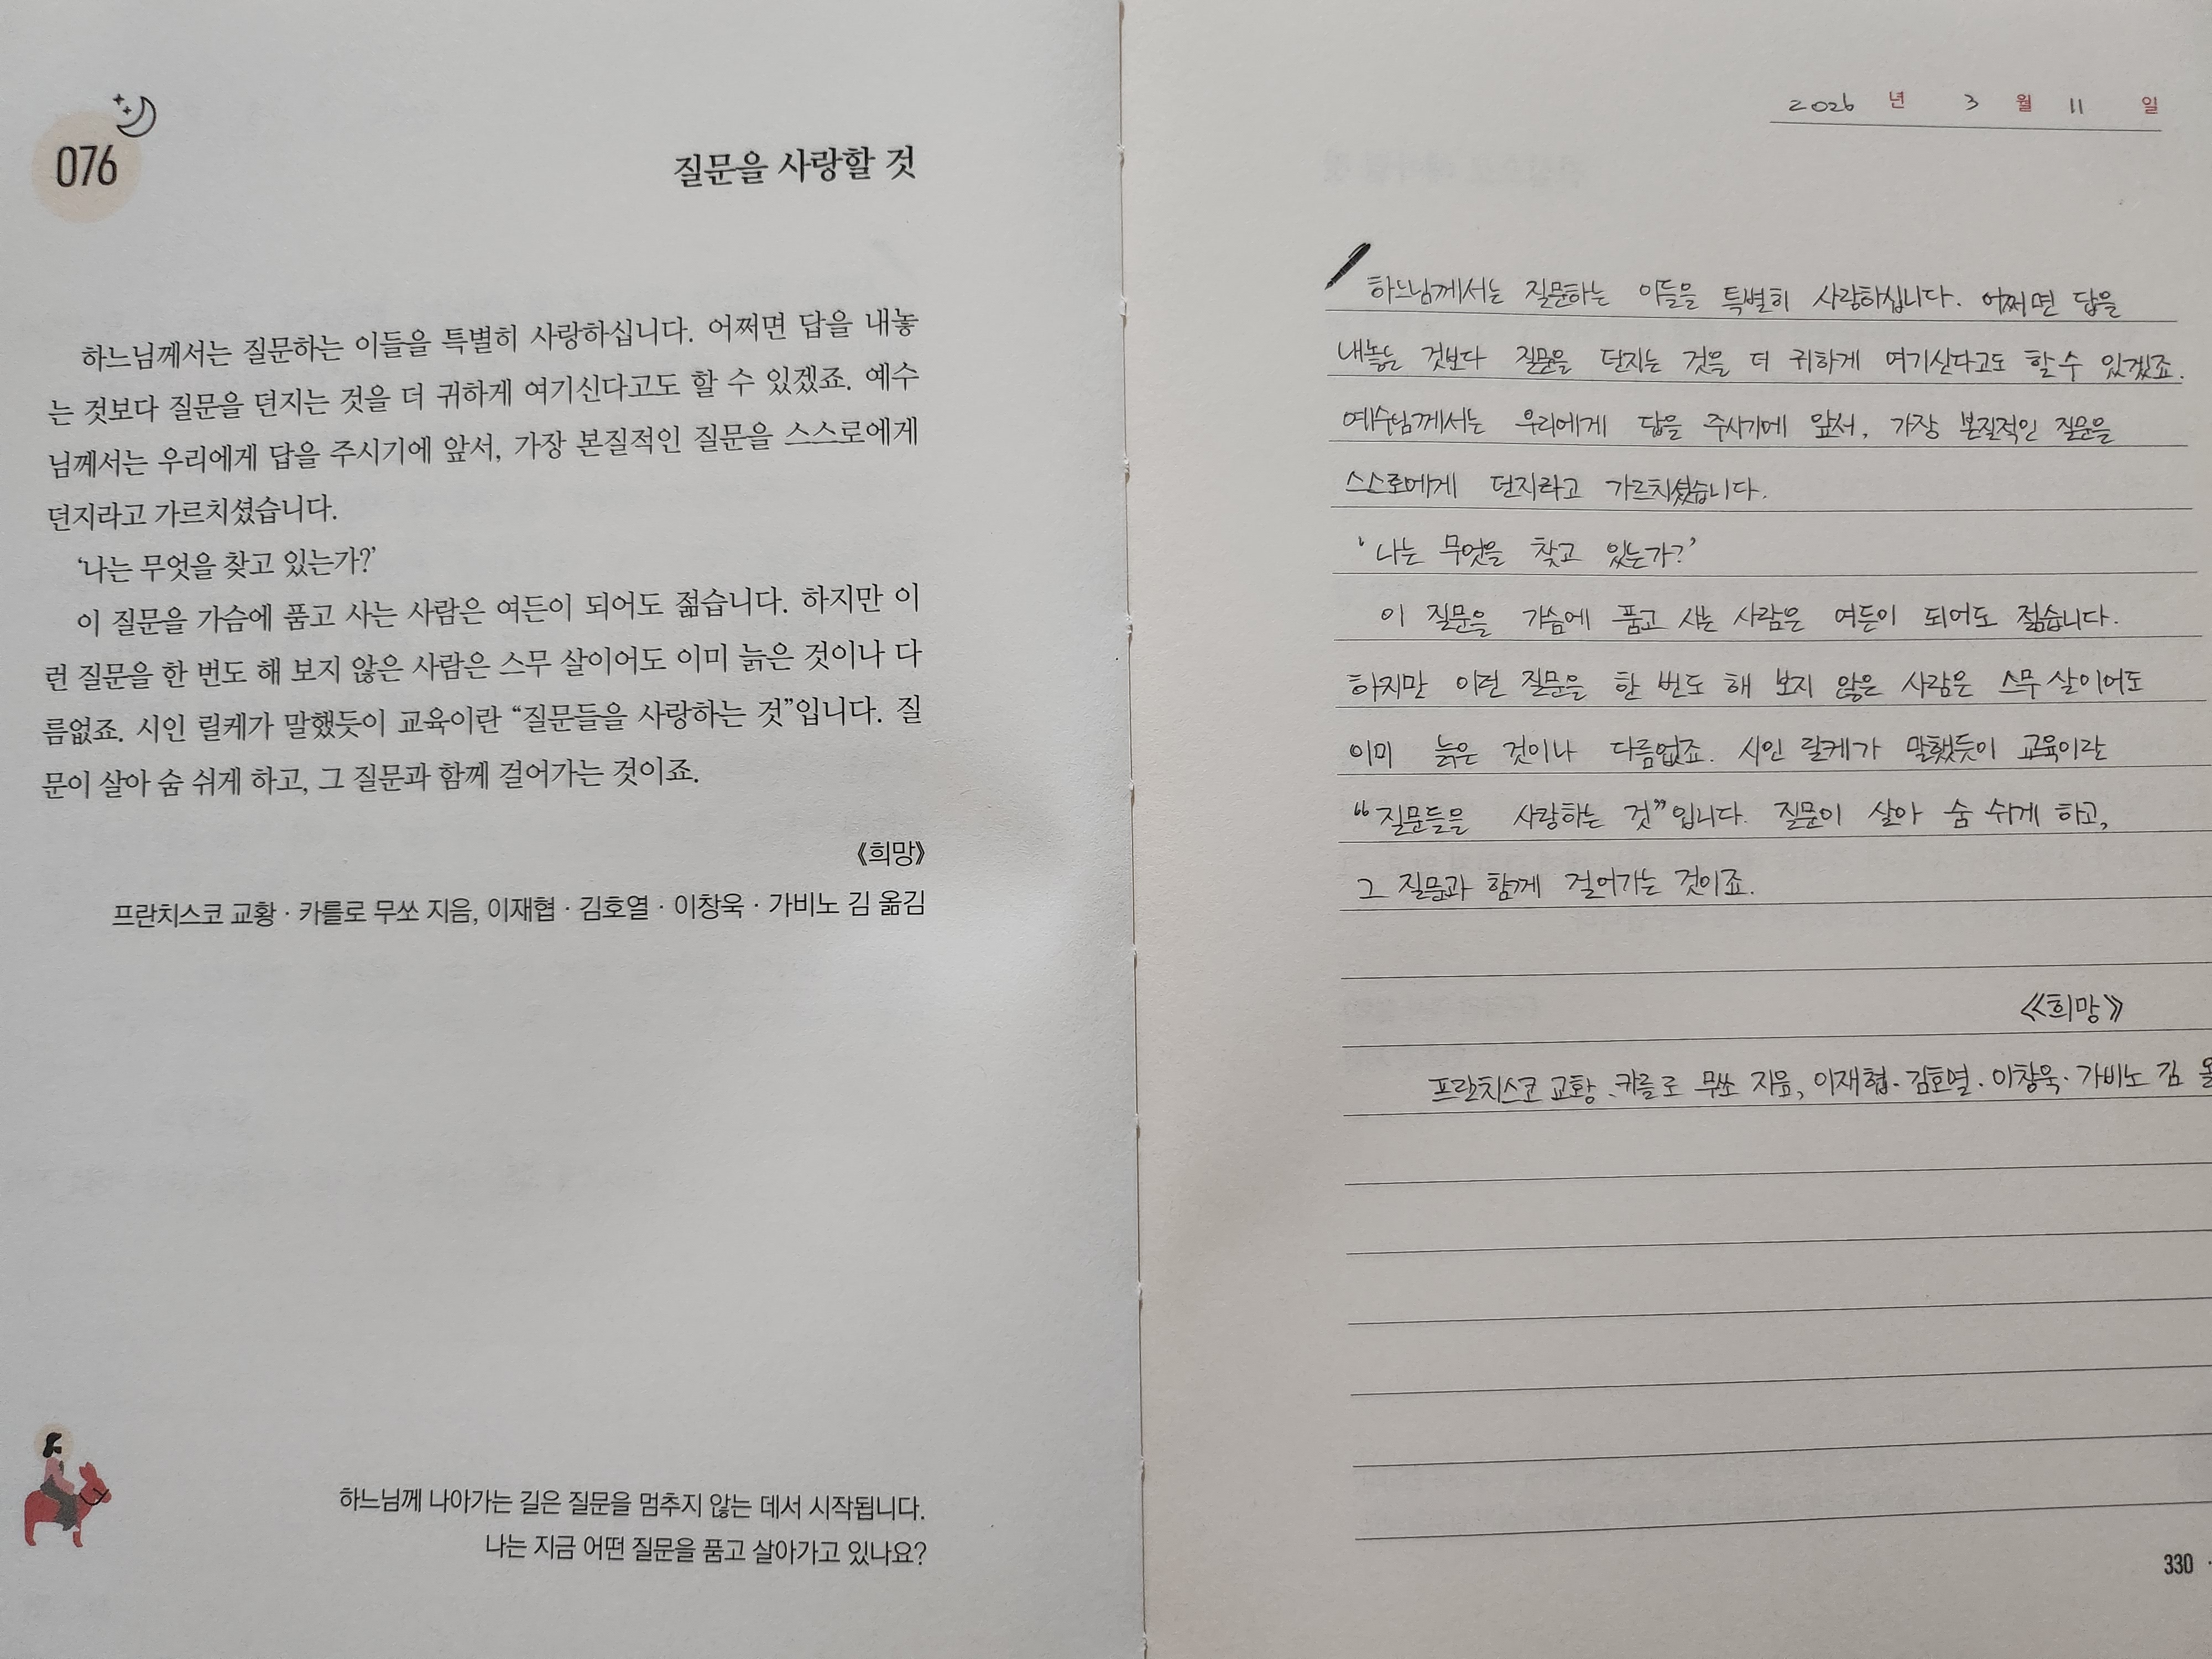 076
질문을 사랑할 것
하느님께서는 질문하는 이들을 특별히 사랑하십니다. 어쩌면 답을 내놓
는 것보다 질문을 던지는 것을 더 귀하게 여기신다고도 할 수 있겠죠. 예수
님께서는 우리에게 답을 주시기에 앞서, 가장 본질적인 질문을 스스로에게
던지라고 가르치셨습니다.
‘나는 무엇을 찾고 있는가?’
이 질문을 가슴에 품고 사는 사람은 여든이 되어도 젊습니다. 하지만 이
런 질문을 한 번도 해 보지 않은 사람은 스무 살이어도 이미 늙은 것이나 다
름없죠. 시인 릴케가 말했듯이 교육이란 “질문들을 사랑하는 것”입니다. 질
문이 살아 숨 쉬게 하고, 그 질문과 함께 걸어가는 것이죠.
《희망》
프란치스코 교황 · 카를로 무쏘 지음, 이재협 · 김호열 · 이창욱 · 가비노 김 옮김
하느님께 나아가는 길은 질문을 멈추지 않는 데서 시작됩니다.
나는 지금 어떤 질문을 품고 살아가고 있나요?
2026 년 3 월 11 일
하느님께서는 질문하는 이들을 특별히 사랑하십니다. 어쩌면 답을
내놓는 것보다 질문을 던지는 것을 더 귀하게 여기신다고도 할 수 있겠죠.
예수님께서는 우리에게 답을 주시기에 앞서, 가장 본질적인 질문을
스스로에게 던지라고 가르치셨습니다.
‘나는 무엇을 찾고 있는가?’
이 질문을 가슴에 품고 사는 사람은 여든이 되어도 젊습니다.
하지만 이런 질문을 한 번도 해 보지 않은 사람은 스무 살이어도
이미 늙은 것이나 다름없죠. 시인 릴케가 말했듯이 교육이란
“질문들을 사랑하는 것”입니다. 질문이 살아 숨 쉬게 하고,
그 질문과 함께 걸어가는 것이죠.
《희망》
프란치스코 교황 · 카를로 무쏘 지음, 이재협 · 김호열 · 이창욱 · 가비노 김
330 ·